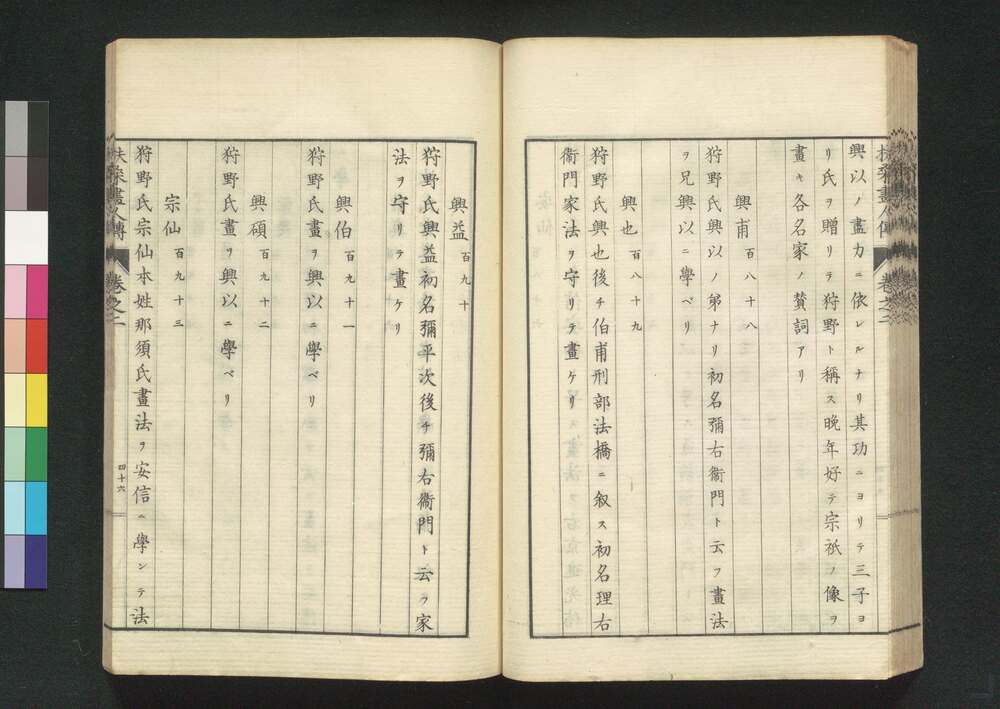 興以ノ畫力ニ依レルナリ其功ニヨリテ三子ヨ
リ氏ヲ贈リテ狩野ト稱ス晩年好テ宗祇ノ像ヲ
畫キ各名家ノ賛詞アリ
興甫 百八十八
狩野氏興以ノ弟ナリ初名彌右衞門ト云フ畫法
ヲ兄興以ニ學ベリ
興也 百八十九
狩野氏興也後チ伯甫刑部法橋ニ叙ス初名理右
衞門家法ヲ守リテ畫ケリ
扶桑畫人傳 卷之二
興益 百九十
狩野氏興益初名彌平次後チ彌右衞門ト云フ家
法ヲ守リテ畫ケリ
興伯 百九十一
狩野氏畫ヲ興以ニ學ベリ
興碩 百九十二
狩野氏畫ヲ興以ニ學ベリ
宗仙 百九十三
狩野氏宗仙本姓那須氏畫法ヲ安信ニ學ンテ法
扶桑畫人傳 卷之二 四十六